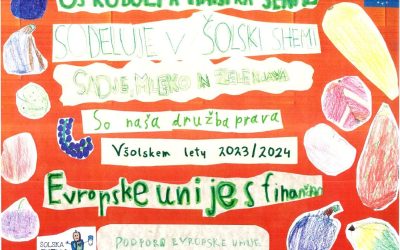 OŠ RUDOLFA MAISTRA ŠENTILJ
SODELUJE V ŠOLSKI SHEMI
SADJE, MLEKO IN ZELENJAVA
So naša družba prava
Všolskem letu 2023/2024
Evropske unije s finančno
PODPORO EVROPSKE UNIJE
ŠOLSKA